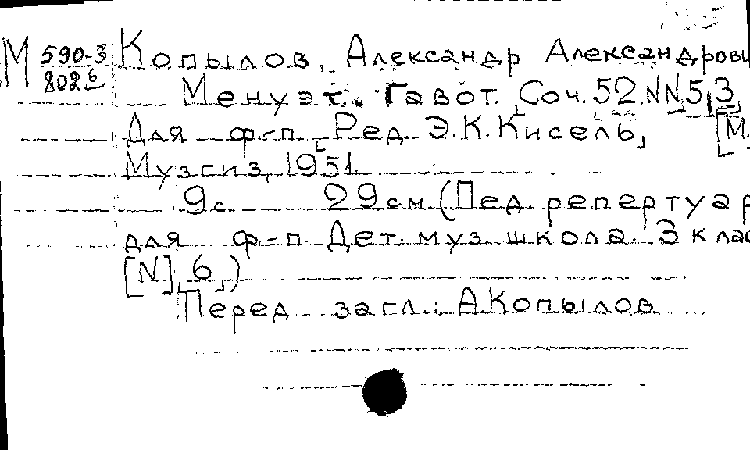 М 590-3 Копылов, Александр Александрови
8026 Менуэт. Гавот. [Соч. 52. NN 5, 3,
Для ф-п. [Ред. Э.К. Кисель, [М.
Музгиз, 1951.
9с. 29см (Пед. репертуар
для ф-п Дет. муз. школа. 3 клас
[N], 6,)
Перед загл.: А. Копылов